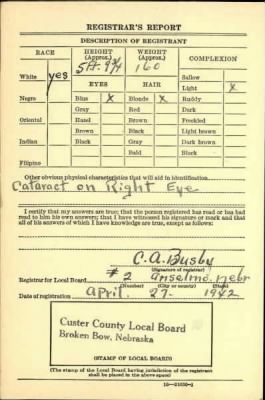 REGISTRAR'S REPORT
DESCRIPTION OF REGISTRANT
RACE HEIGHT (Approx.) WEIGHT (Approx.) COMPLEXION
5ft. 9¾ 160
White yes Sallow
EYES HAIR Light X
Negro Blue X Blonde X Ruddy
Gray Red Dark
Oriental Hazel Brown Freckled
Brown Black Light brown
Indian Black Gray Dark brown
Bald Black
Filipino
Other obvious physical characteristics that will aid in identification
Cataract on Right Eye
I certify that my answers are true; that the person registered has read or has had
read to him his own answers; that I have witnessed his signature or mark and that
all of his answers of which I have knowledge are true, except as follows:
C.A. Busby
(Signature of registrar)
Registrar for Local Board #2 Anselmo, Nebr
(Number) (City or county) (State)
Date of registration April 27- 1942
Custer County Local Board
Broken Bow, Nebraska
(STAMP OF LOCAL BOARD)
(The stamp of the Local Board having jurisdiction of the registrant
shall be placed in the above space)